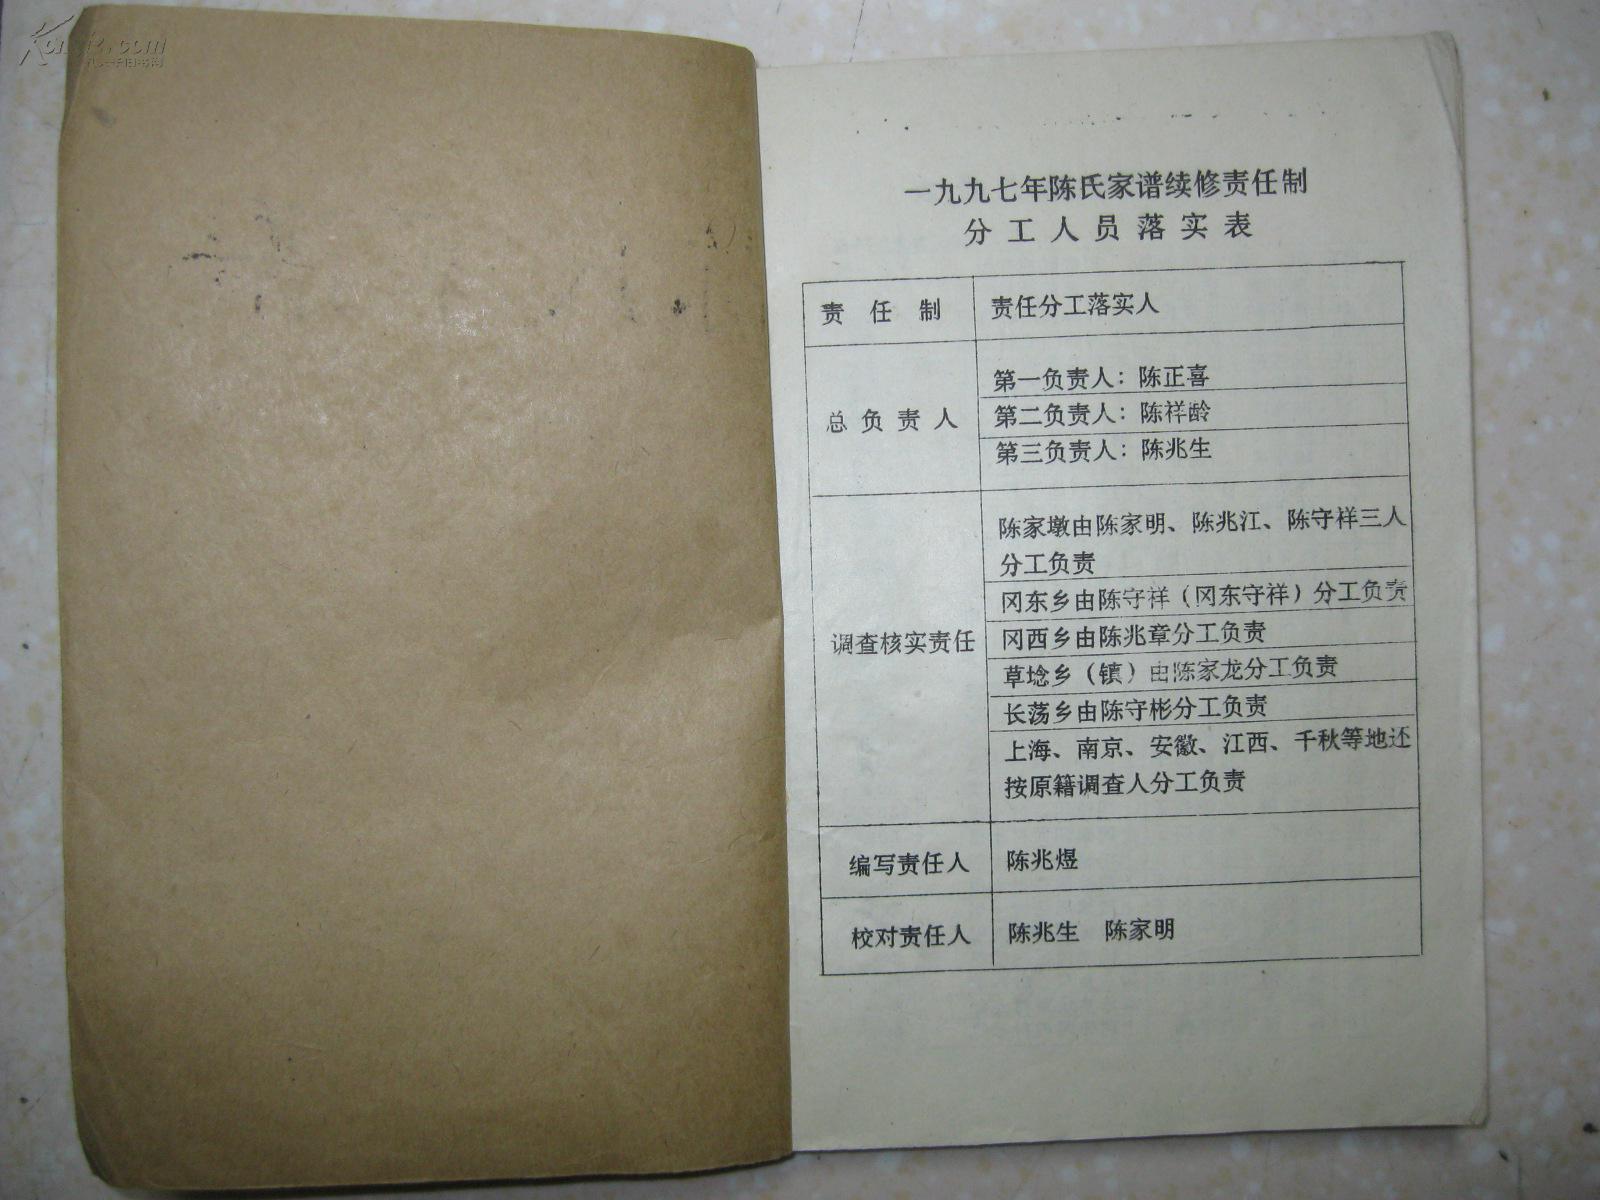 Kongfz.com
孔夫子旧书网
一九九七年陈氏家谱续修责任制
分工人员落实表
责任制 责任分工落实人
总负责人
第一负责人：陈正喜
第二负责人：陈祥龄
第三负责人：陈兆生
调查核实责任
陈家墩由陈家明、陈兆江、陈守祥三人
分工负责
冈东乡由陈守祥（冈东守祥）分工负责
冈西乡由陈兆章分工负责
草埝乡（镇）由陈家龙分工负责
长荡乡由陈守彬分工负责
上海、南京、安徽、江西、千秋等地还
按原籍调查人分工负责
编写责任人 陈兆煜
校对责任人 陈兆生 陈家明